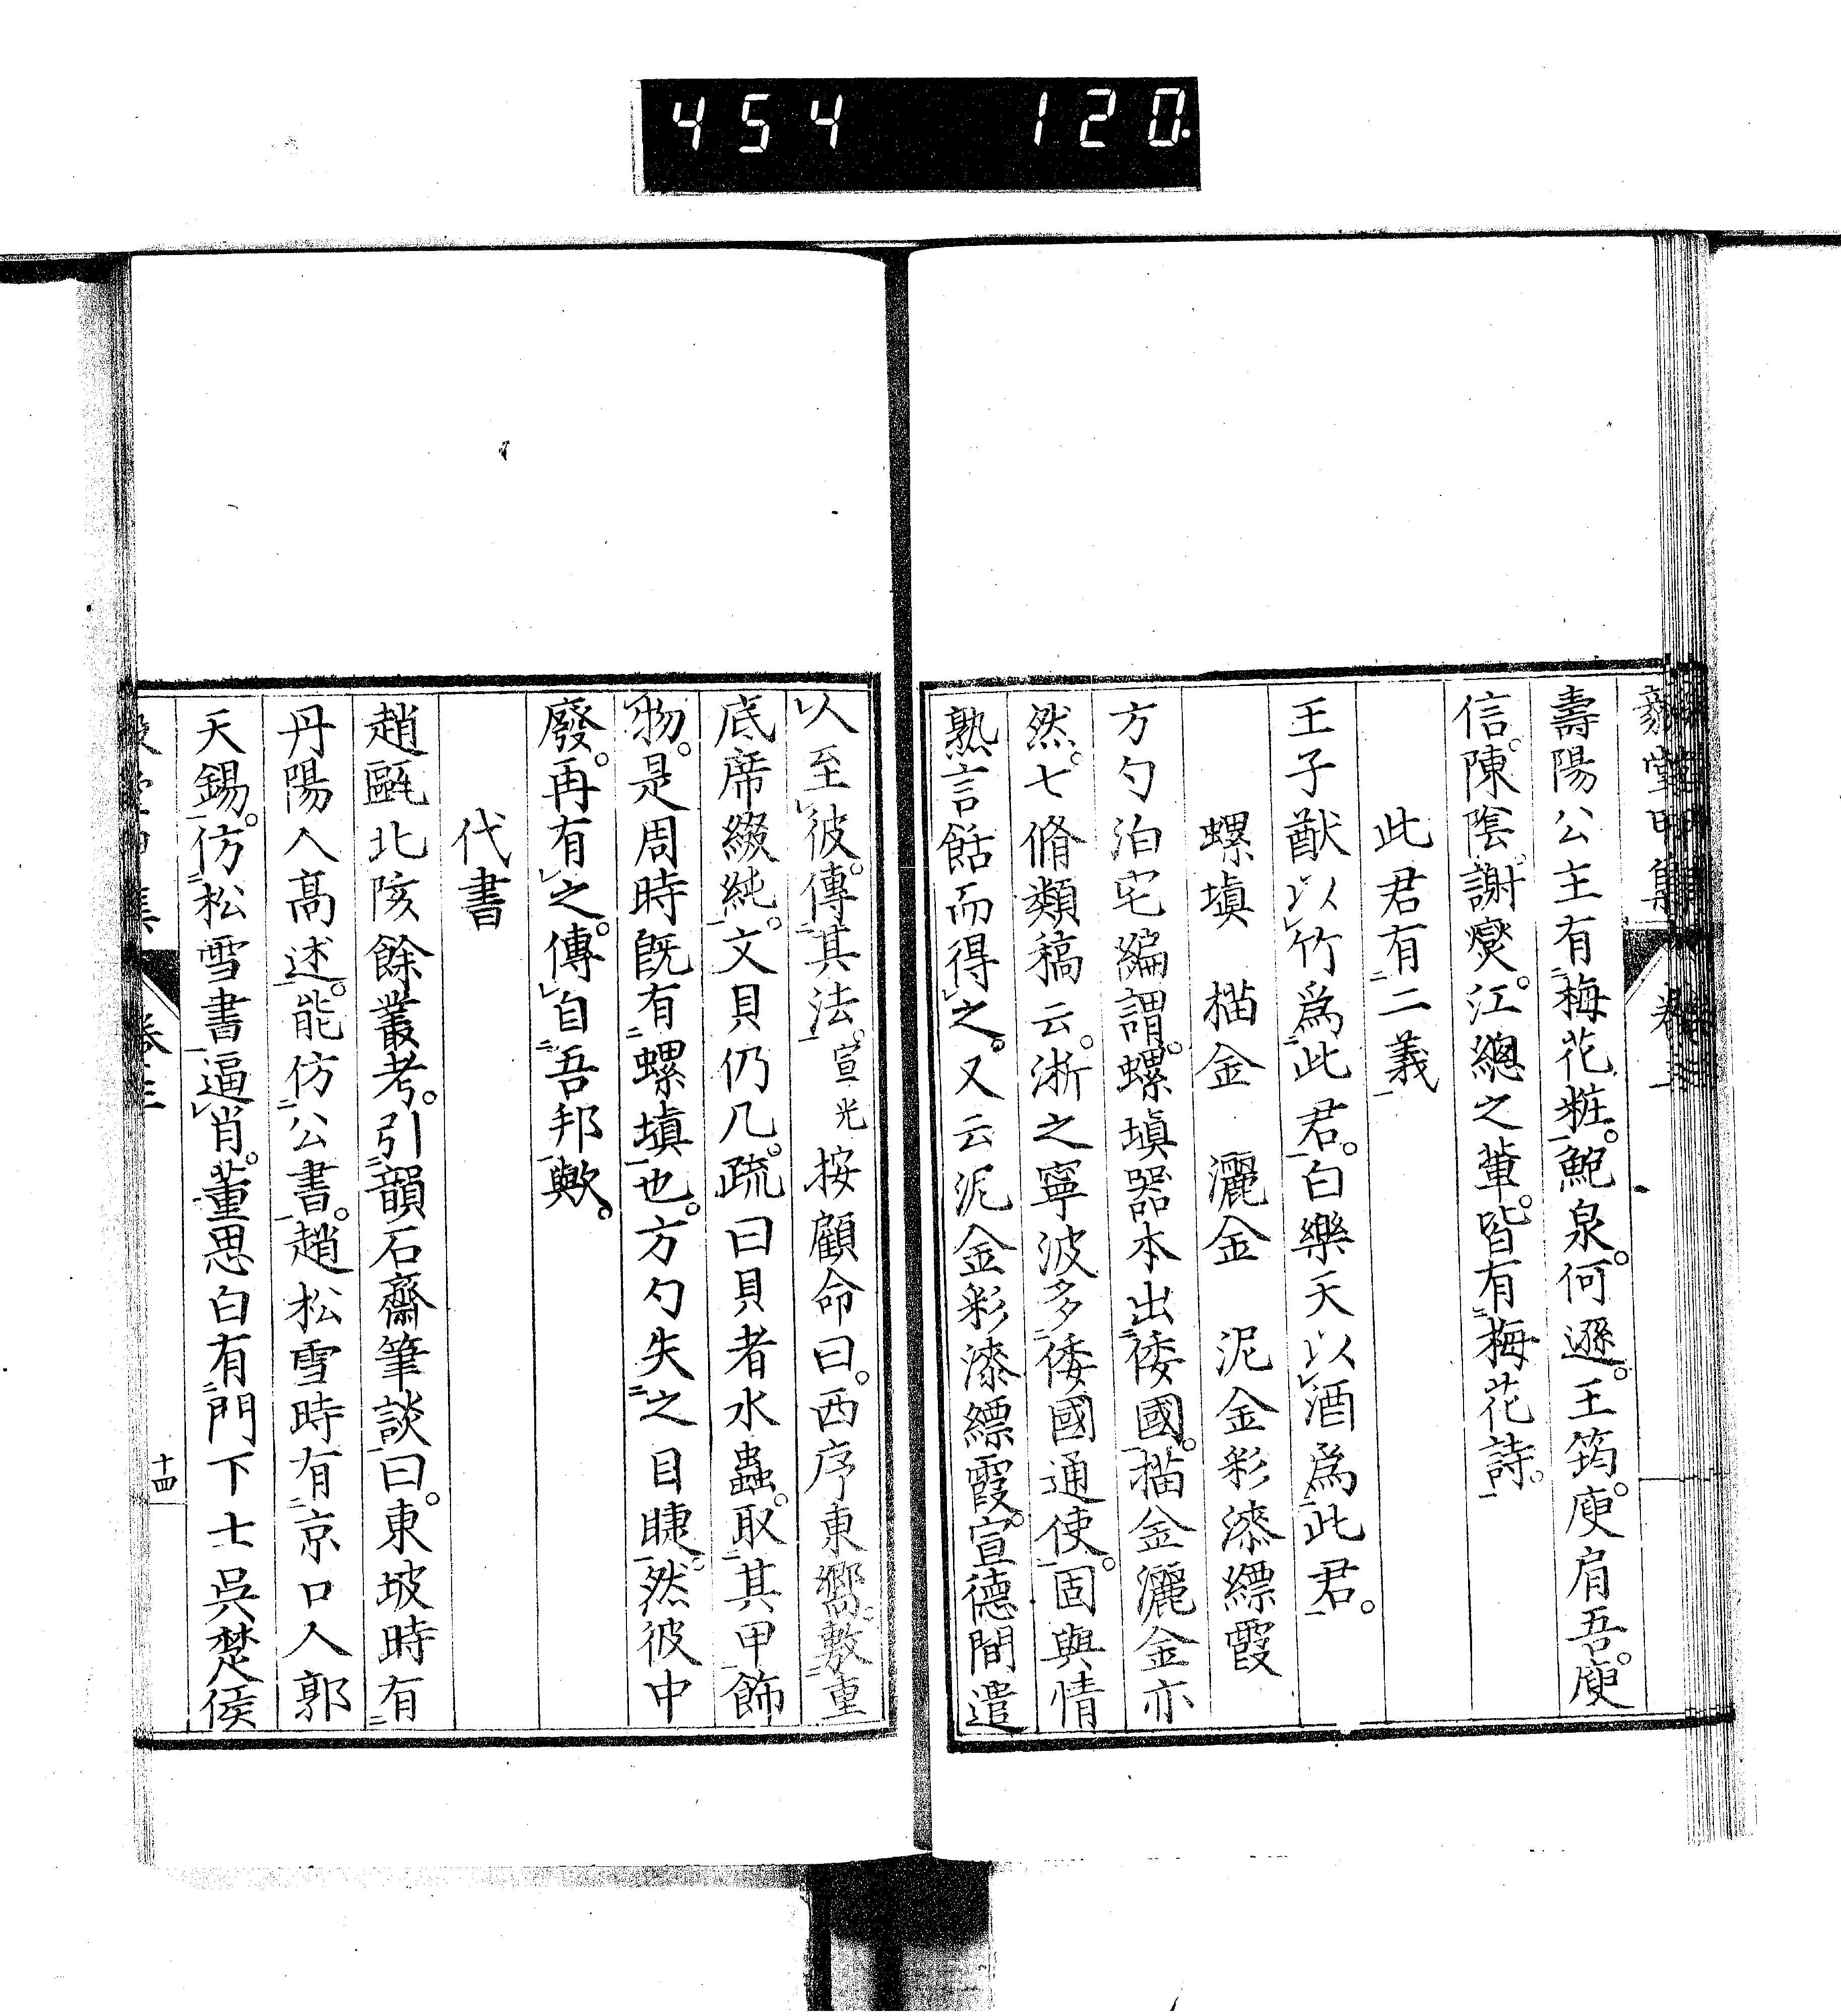 454 120
壽陽公主有梅花粧。鮑泉。何遜。王筠。庾肩吾。庾
信。陳陰。謝燮。江總之輩。皆有梅花詩。
此君有二義
王子猷以竹爲此君。白樂天以酒爲此君。
螺塡 描金 灑金 泥金彩漆縹霞
方勺泊宅編謂。螺塡器本出倭國。描金灑金亦
然。七脩類稿云。浙之寧波多倭國通使。固與情
熟言餂而得之。又云泥金彩漆縹霞。宣德間遣
人至彼。傳其法。宣光按顧命曰。西序東嚮。敷重
底席綴純。文貝仍几。疏曰貝者水蟲。取其甲飾
物。是周時既有螺塡也。方勺失之目睫。然彼中
廢。再有之。傳自吾邦歟。
代書
趙甌北陔餘叢考。引韻石齋筆談曰。東坡時有
丹陽人高述。能仿公書。趙松雪時有京口人郭
天錫。仿松雪書逼肖。董思白有門下士吳楚侯
卷三
十四